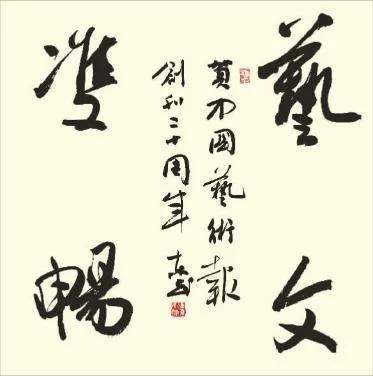 藝文
賀中國藝術報
創刊二十周年
雙暢